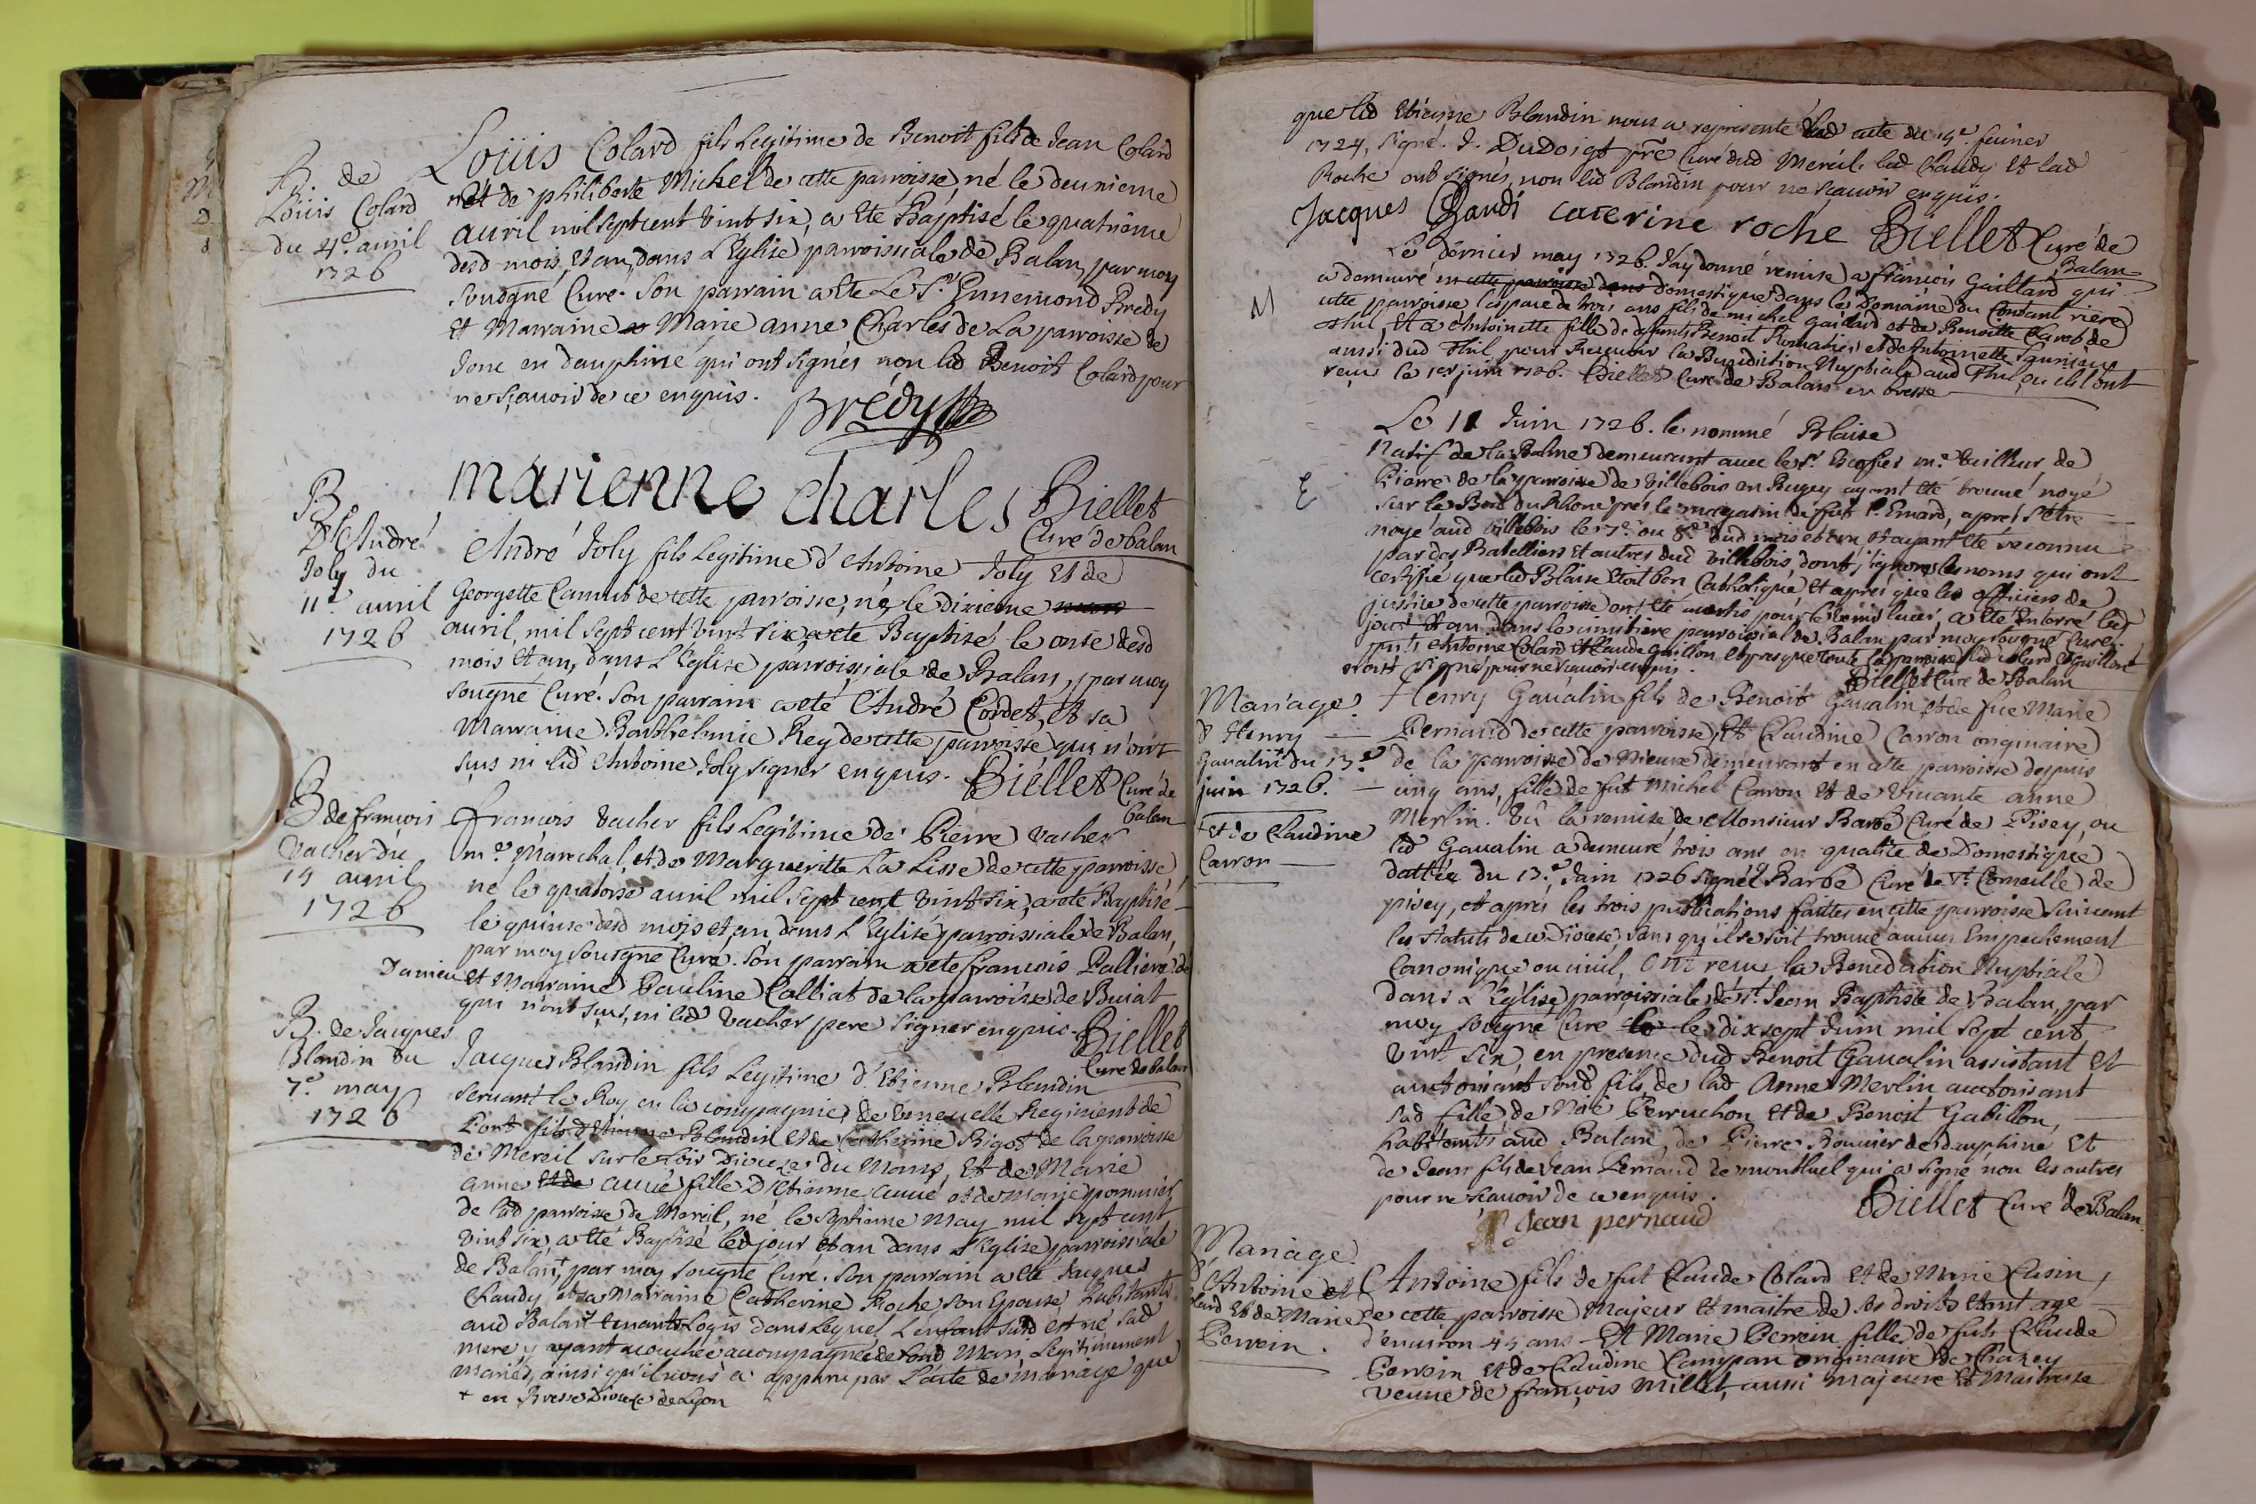 B. de
Loüis Colard
du 4e. auril
1726
Loüis Colard fils Legitime de Benoit fils de Jean Colard
et de philiberte Michel de cette parroisse, né le deunieme
auril mil sept cent vint six, a eté Baptisé le quatrieme
desd mois, et an, dans L'Eglise parroissiale de Balan, par moy
sousgné Curé. Son parrain a ete Le Sr. Ennemond Bredy
et Marraine Marie anne Charles de La parroisse de
Jone en dauphiné qui ont signés non led Benoit Colard pour
ne sçauoir de ce enquis.
Bredy
marienne charles Biellet
Curé de balan
B.
d'André
Joly du
11e auril
1726
André Joly fils Legitime d'Antoine Joly et de
Georgette Camus de cette parroisse, né le dixieme
auril, mil sept cent vint six a ete Baptisé le onse desd
mois et an, dans L'Eglise parroissiale de Balan, par moy
sougné Curé. Son parrain a eté André Cordet, et sa
Marraine Barthelemie Rey de cette parroisse qui n'ont
sçus ni led Antoine Joly signer enquis. Biellet Curé de
balan
B. de francois
Vacher du
15 auril
1726
francois Vacher fils Legitime de Pierre Vacher
me. Marechal, et de Margueritte La Lisse de cette parroisse
né le quatorse auril mil sept cent vint six, a eté Baptisé
le quinse desd mois et an dans L'Eglise parroissiale de Balan,
par moy sousgné Curé. Son parrain a ete francois Palliere de
Damieu et Marraine Pauline Calliat de la parroisse de
qui n'ont sçus, ni led Vacher pere signer enquis. Biellet
Curé de balan
B. de Jacques
Blandin du
7e. may
1726
Jacques Blandin fils Legitime d'Etienne Blandin
seruant le Roy en la compagnie de Regiment de
fils d'Etienne Blandin et de Catherine Bigot de la parroisse
de Mereil sur le Loir Dioceze du Mans, et de Marie
anne et de fille D'Etienne et de Marie pommier
de lad parroisse de Mereil, né le septieme May mil sept cent
vint six a eté Baptisé led jour et an dans L'Eglise parroissiale
de Balan+, par moy sougné Curé. Son parrain a ete Jacques
Chaudy et sa Marraine Catherine Roche son Epouse, habitants
aud Balan tenants Logis dans Lequel L'enfant susd est né sad
mere y ayant acouchée accompagnée de sond Mari, Legitimement
mariés, ainsi qu'il nous a apparu par L'acte de mariage que
+ en Bresse Dioceze de Lyon
que led Etienne Blandin nous a representé lad acte du feurier
1724, signé. J. Dudoigt pre Curé dud Mereil. led Chaudy et lad
Roche ont signés, non led Blandin pour ne scauoir enquis.
Jacques Chaudi caterine roche Biellet Curé de
Balan
M
Le dernier may 1726. J'ay donné remise a francois Gaillard qui
a demeuré en cette parroisse dans domestique dans le Domaine du Content riere
cette parroisse l'espace de trois ans fils de michel Gaillard et de Benoitte Claret de
thil, et a Antoinette fille de defunts Benoit et de Antoinette
aussi dud Thil, pour Receuoir la Benediction Nuptiale aud Thil, ou ils l'ont
reçue le 1er juin 1726. Biellet Curé de Balan en bresse
E
Le 11 Juin 1726. le nommé Blaise
Natif de la Balme demeurant auec le Sr. me. tailleur de
Pierre de la parroisse de Villebois en Bugey ayant ete trouué noyé
sur le Bord du Rhone près le magasin de fut Sr Emard, aprés s'etre
noyé aud Villebois le 7e. ou 8e. dud mois et an et ayant ete reconnu
par des Batelliers et autres dud Villebois, dont j'ignore les noms qui ont
certifié que led Blaise etoit bon Catholique, et aprés que les officiers de
justice de cette parroisse ont eté auertis pour le leuer, a eté enterré led
jour et an dans le cimitiere parroissial de Balan par moy sougné Curé.
pnts Antoine Colard et Claude Guillon et presque toute la parroisse led Colard et Guillon
n'ont signé pour ne scauoir enquis.
Biellet Curé de Balan
Mariage
d'Henry
Gaualin+ du 17e
juin 1726.
+ et de Claudine
Carron
Henry Gaualin fils de Benoit Gaualin, et de fue Marie
Pernaud de cette parroisse, Et Claudine Carron originaire
de la parroisse de Nieure demeurant en cette parroisse despuis
cinq ans, fille de fut Michel Carron et de viuante anne
Merlin. Vû la remise de Monsieur Barbe Curé de Pisey, ou
led Gaualin a demeuré trois ans en qualité de Domestique
dattée du 13e. Juin 1726 signée Barbe Curé de St. Corneille de
pisey, et aprés les trois publications faittes en cette parroisse suiuant
les statuts de ce Dioceze, sans qu'il se soit trouué aucun Empechement
Canonique ou ciuil, Ont reçu la Benediction Nuptiale
dans L'Eglise parroissiale de St. Jean Baptiste de Balan, par
moy sougné Curé le le dixsept Juin mil sept cent
vint six, en presence dud Benoit Gaualin assistant et
autorisant sond fils, de lad Anne Merlin authorisant
sad fille, de Perruchon et de Benoit Gabillon,
habitants aud Balan, de Pierre Bouuier de dauphiné et
de Jean fils de Jean Pernaud de montluel qui a signé non les autres
pour ne scauoir de ce enquis.
Jean pernaud Biellet Curé de Balan
Mariage
d'Antoine Co
lard et de Marie
Perrein.
Antoine fils de fut Claude Colard et de Marie Cusin,
de cette parroisse Majeur et maitre de ses droits etant agé
d'enuiron 45 ans Et Marie Perrein fille de futs Claude
Perrein et de Claudine Campan originaire de Chazey
veuue de françois Millet, aussi majeure et Maitresse